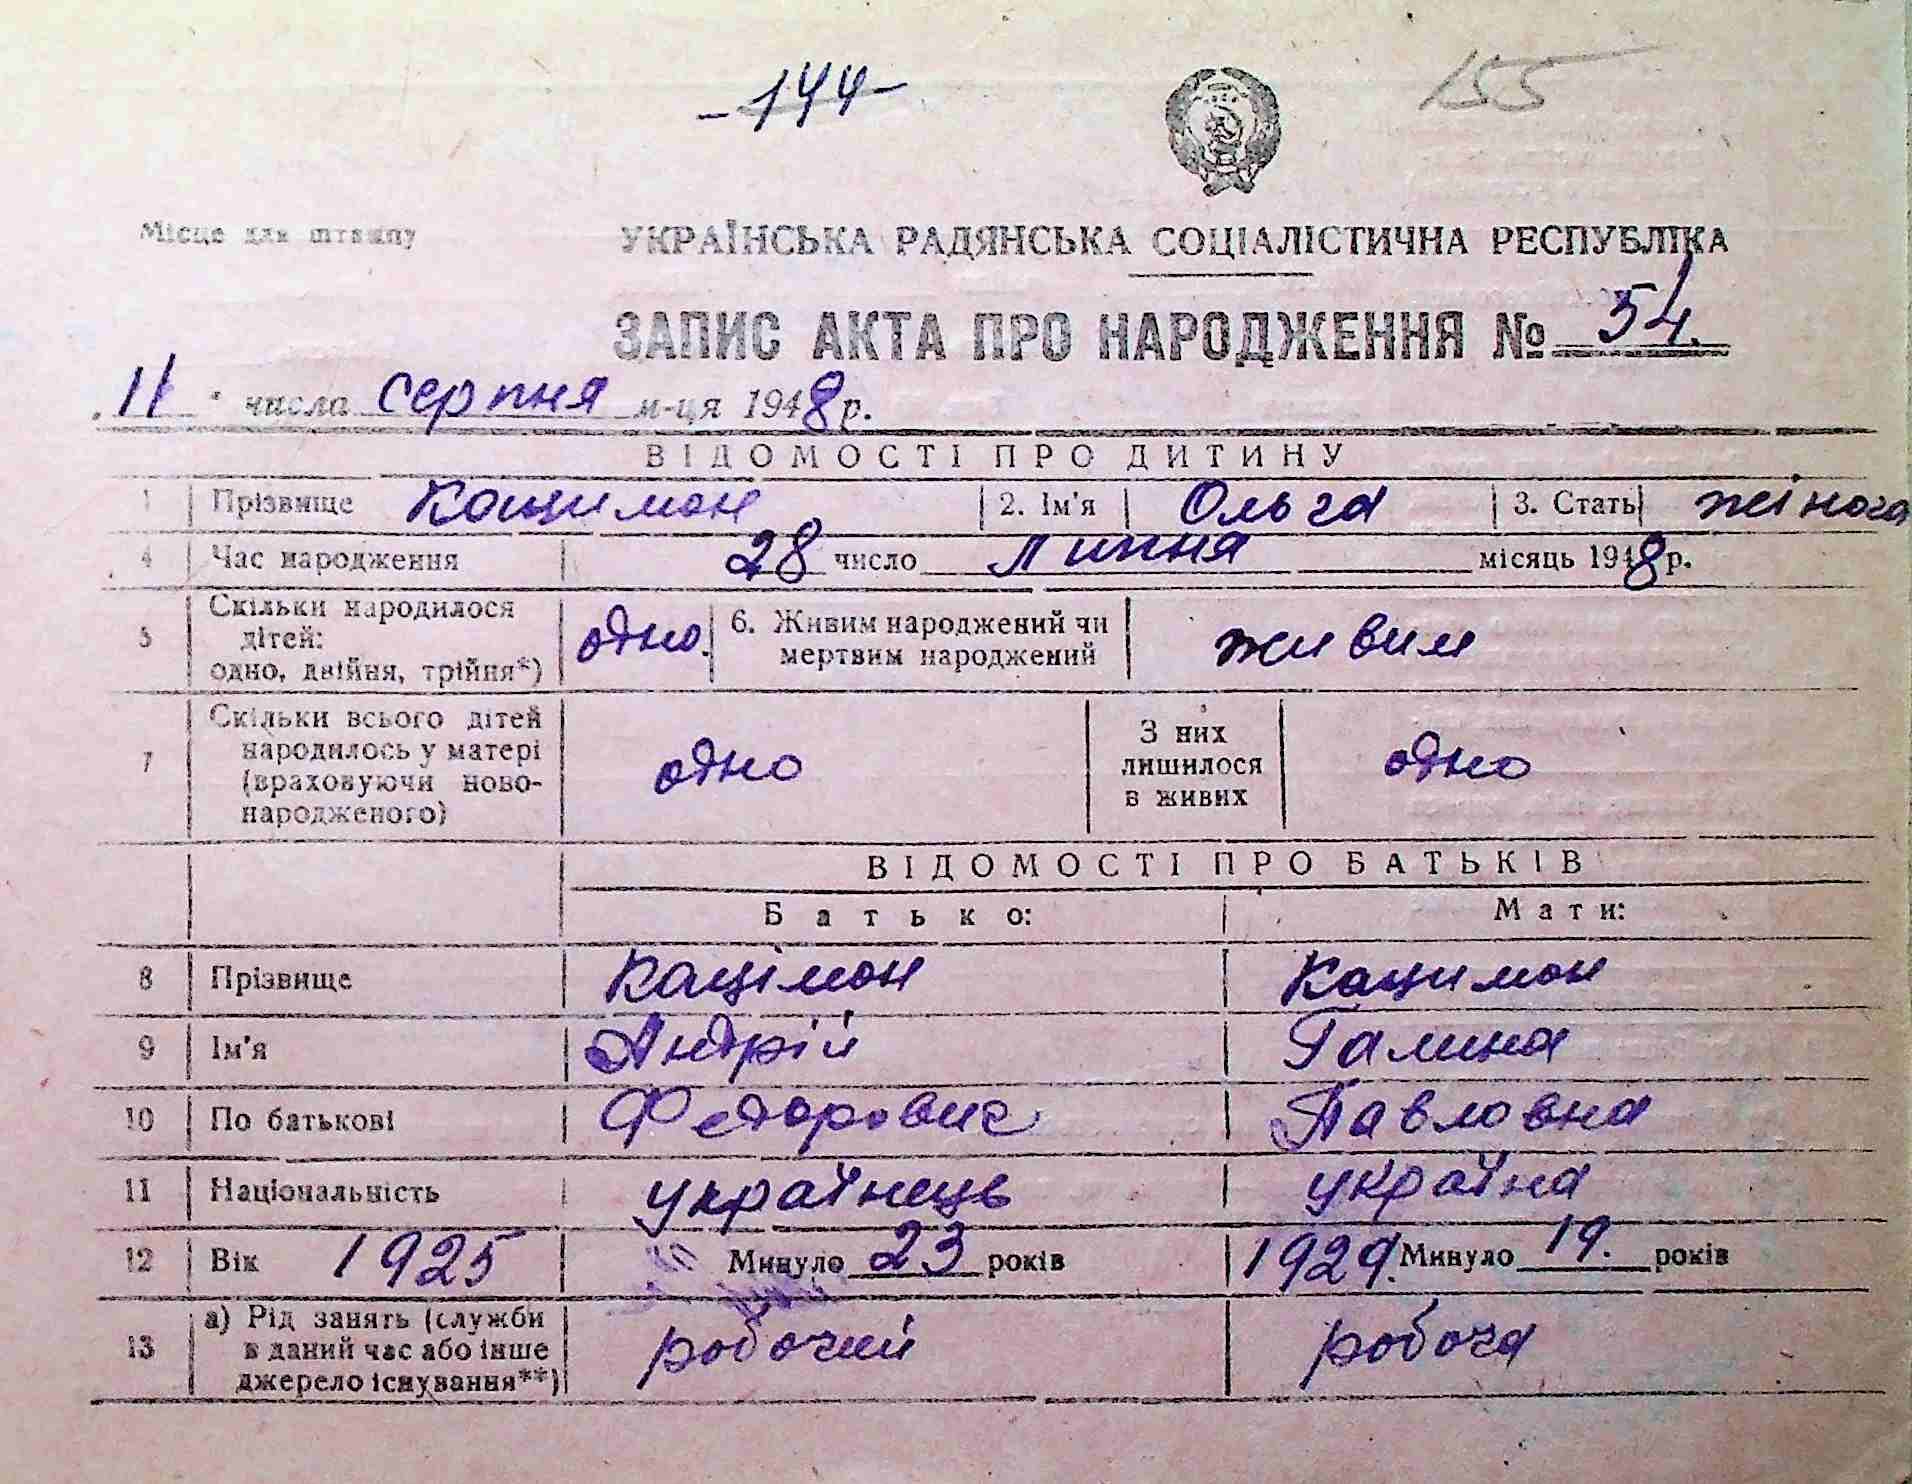 -144-
155
Місце для штампу
УКРАЇНСЬКА РАДЯНСЬКА СОЦІАЛІСТИЧНА РЕСПУБЛІКА
ЗАПИС АКТА ПРО НАРОДЖЕННЯ № 54.
"11" числа серпня м-ця 1948 р.
ВІДОМОСТІ ПРО ДИТИНУ
1 Прізвище Кацимон 2. Ім'я Ольга 3. Стать жіноча
4 Час народження 28 число липня місяць 1948 р.
5 Скільки народилося дітей: одно, двійня, трійня*) одно. 6. Живим народжений чи мертвим народжений живим
7 Скільки всього дітей народилось у матері (враховуючи новонародженого) одно З них лишилося в живих одно
ВІДОМОСТІ ПРО БАТЬКІВ
Батько: Мати:
8 Прізвище Кацімон Кацимон
9 Ім'я Андрій Галина
10 По батькові Федорович Павловна
11 Національність українець україна
12 Вік 1925 Минуло 23 років 1929. Минуло 19. років
13 а) Рід занять (служби в даний час або інше джерело існування**) робочий робоча